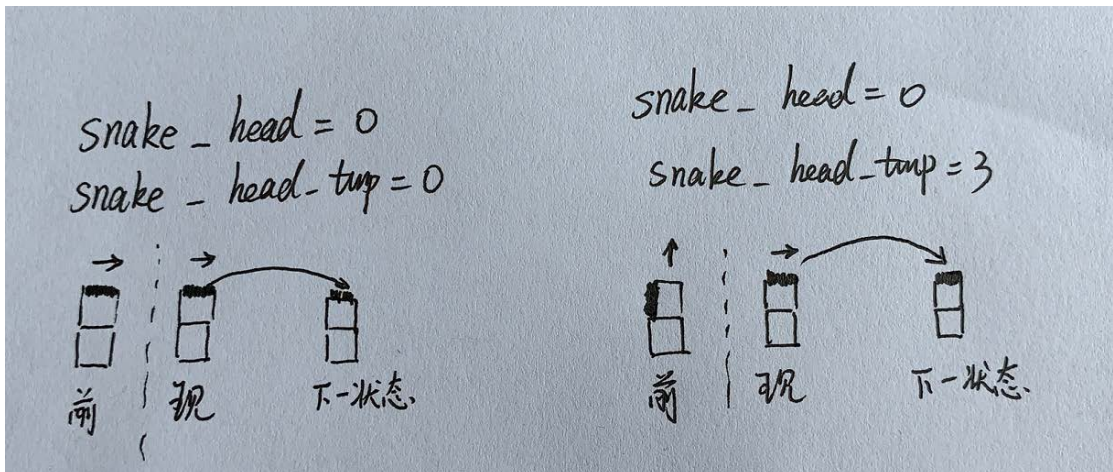 snake_head = 0
snake_head_tmp = 0
前 现 下一状态.
snake_head = 0
snake_head_tmp = 3
前 现 下一状态.